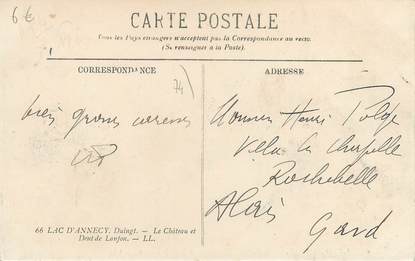 6€
CARTE POSTALE
Tous les Pays étrangers n'acceptent pas la Correspondance au recto.
(Se renseigner à la Poste).
CORRESPONDANCE
74
ADRESSE
bien grosses caresses
Monsieur Henri
la chapelle
Rochebelle
Alais
Gard
66 LAC D'ANNECY. Duingt. - Le Château et
Dent de Lanfon. - LL.